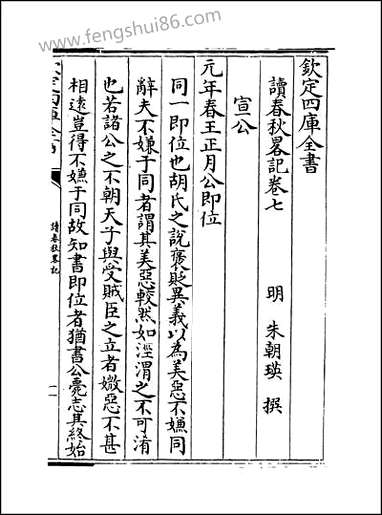 www.fengshui86.com
欽定四庫全書
讀春秋畧記卷七
明 朱朝瑛 撰
宣公
元年春王正月公即位
同一即位也胡氏之說褒貶異義以為美惡不嫌同
辭夫不嫌于同者謂其美惡較然如涇渭之不可淆
也若諸公之不朝天子與受賊臣之立者媺惡不甚
相逺豈得不嫌于同故知書即位者猶書公薨志其終始
讀春秋畧記
一